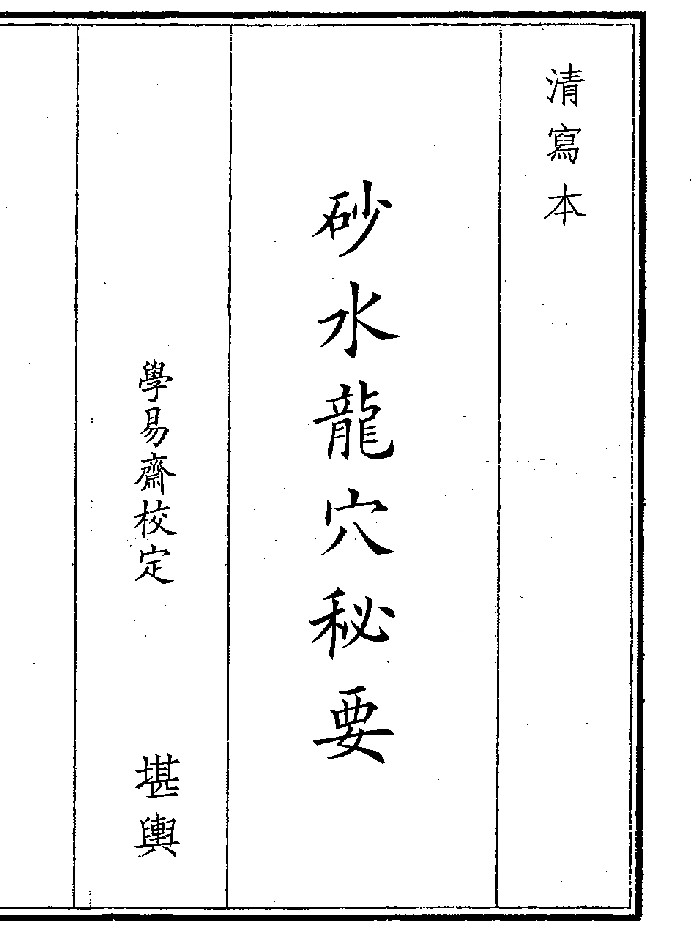 清寫本
砂水龍穴秘要
學易齋校定
堪輿